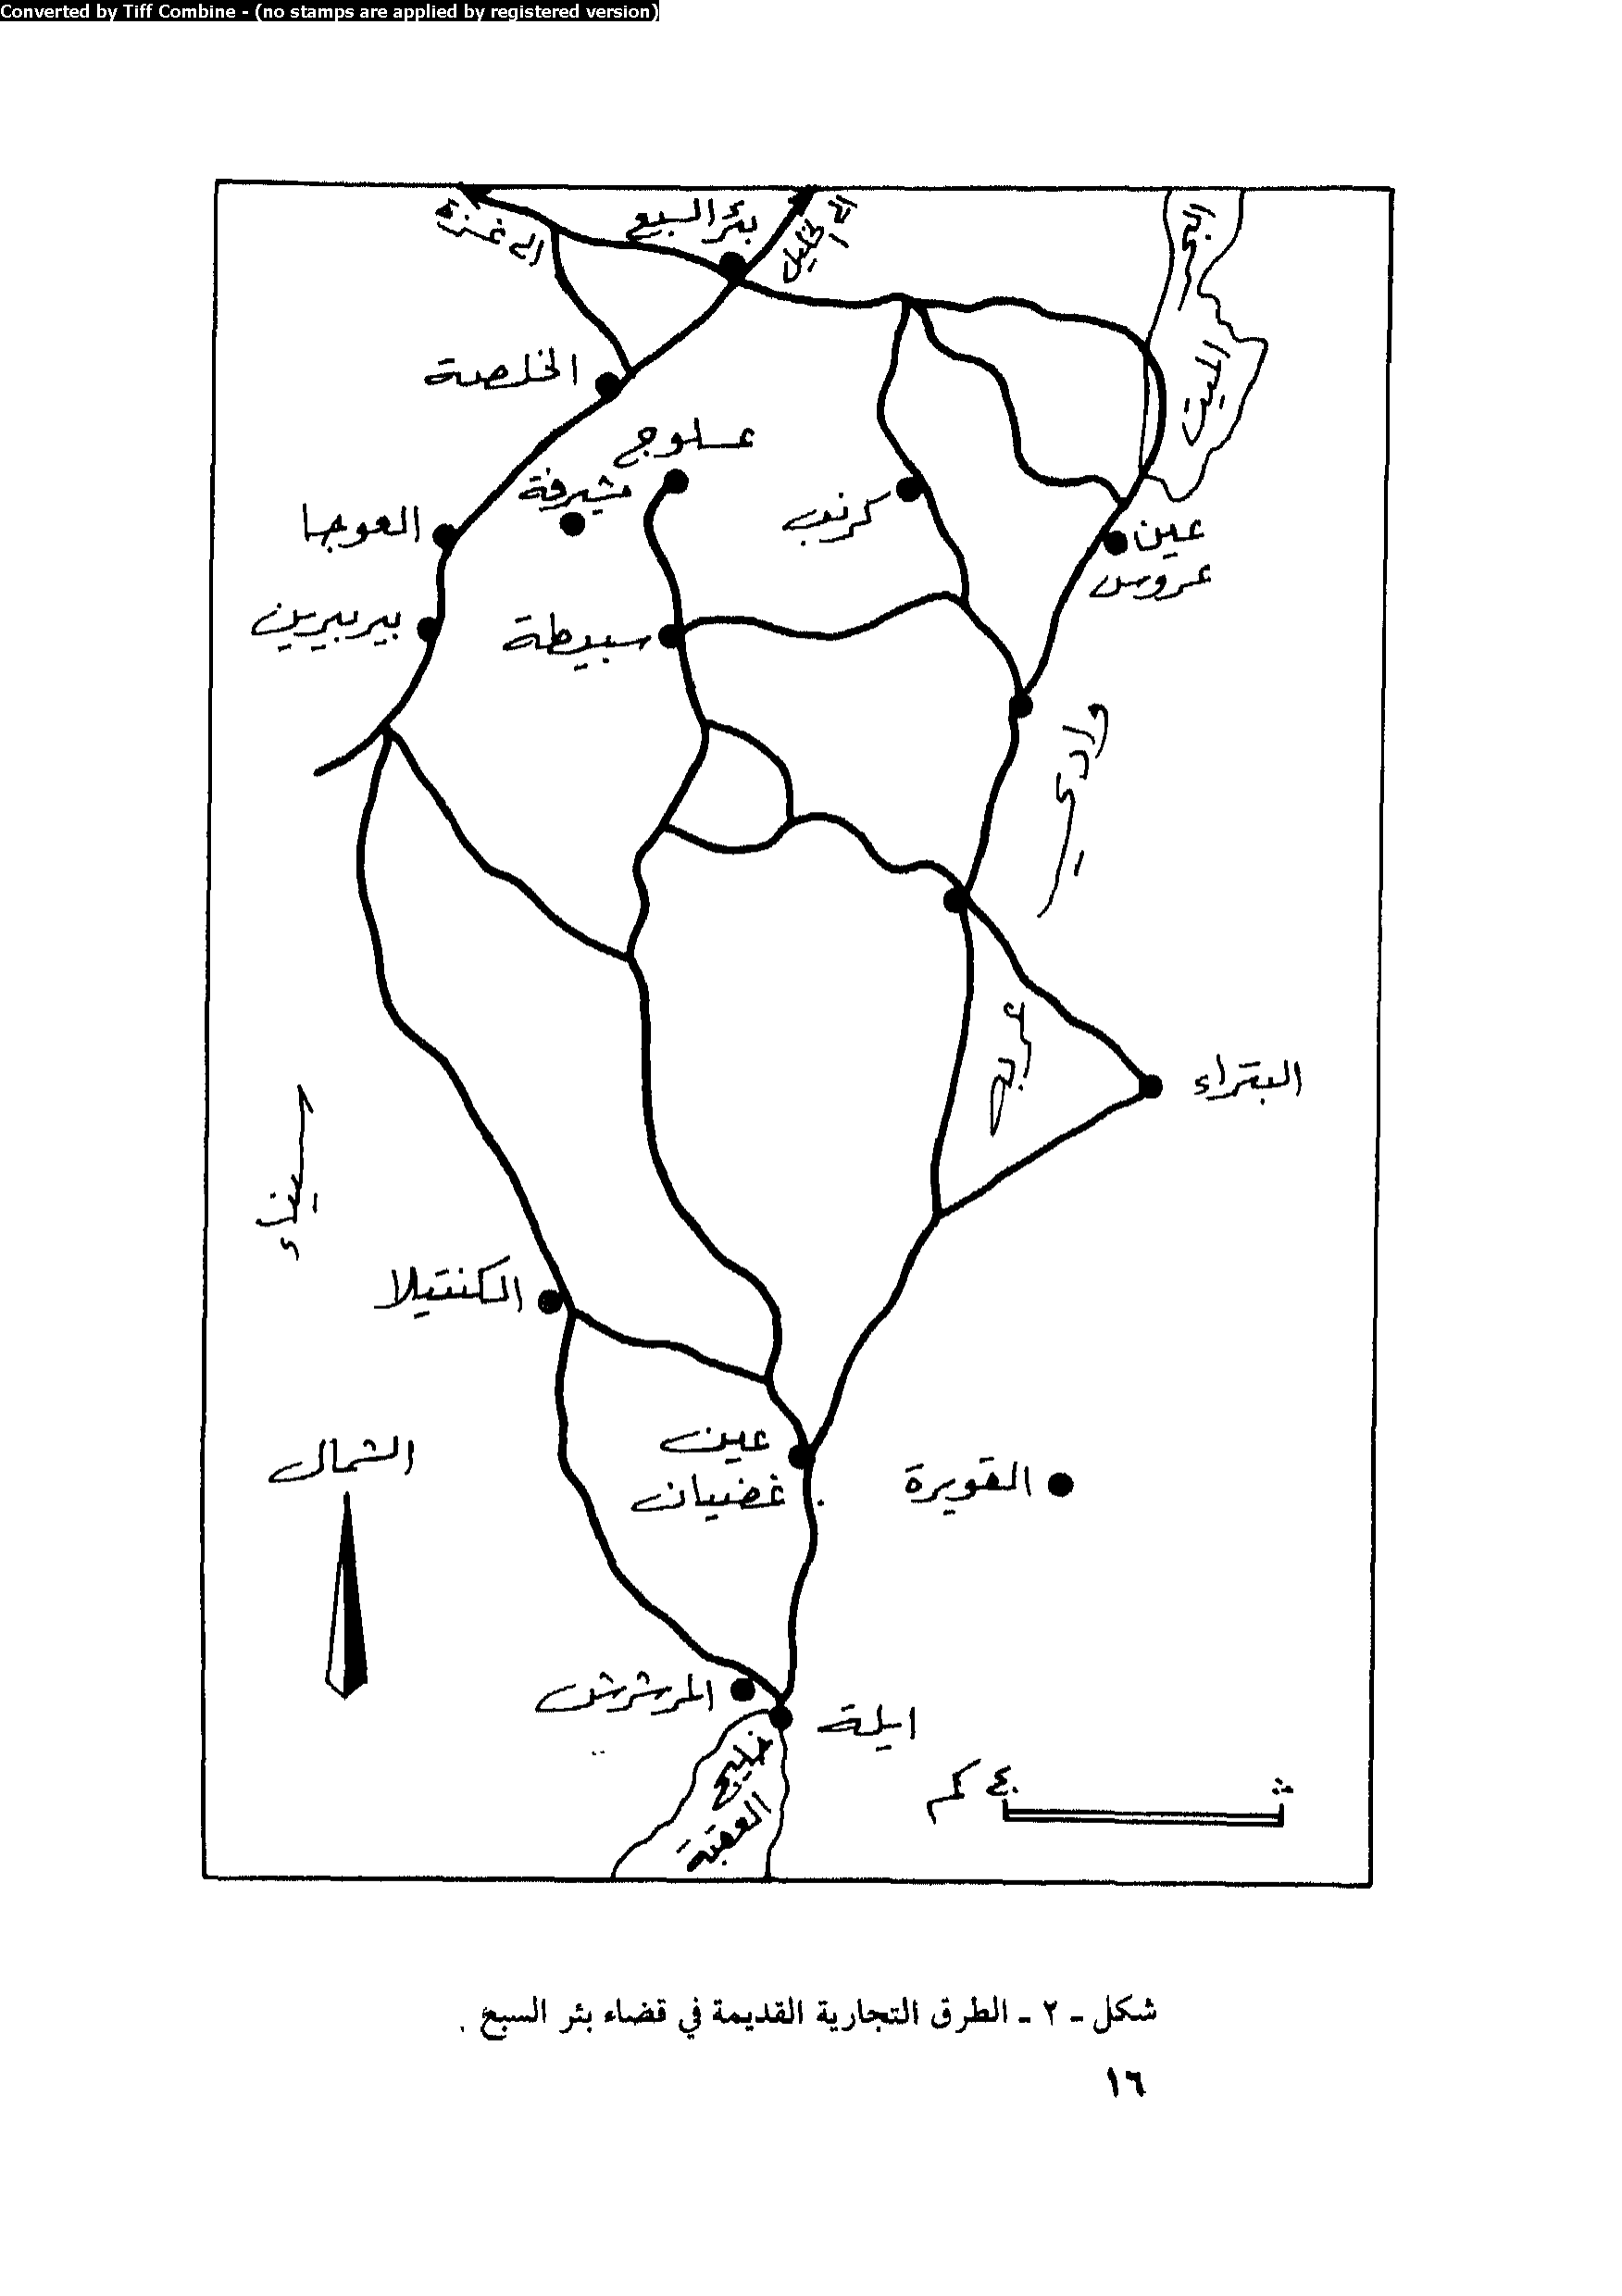 Converted by Tiff Combine - (no stamps are applied by registered version)
الى غزة
بئر السبع
الى الخليل
البحر
الميت
الخلصة
عسلوج
مشرفة
كرنب
العوجا
عين
عروس
بيربيرين
سبيطة
وادي
عربه
البتراء
سيناء
الكنتيلا
عين
غضيان
القويرة
الشمال
المرشرش
ايلة
خليج
العقبة
٤٠ كم
شكل - ٢ - الطرق التجارية القديمة في قضاء بئر السبع .
١٦